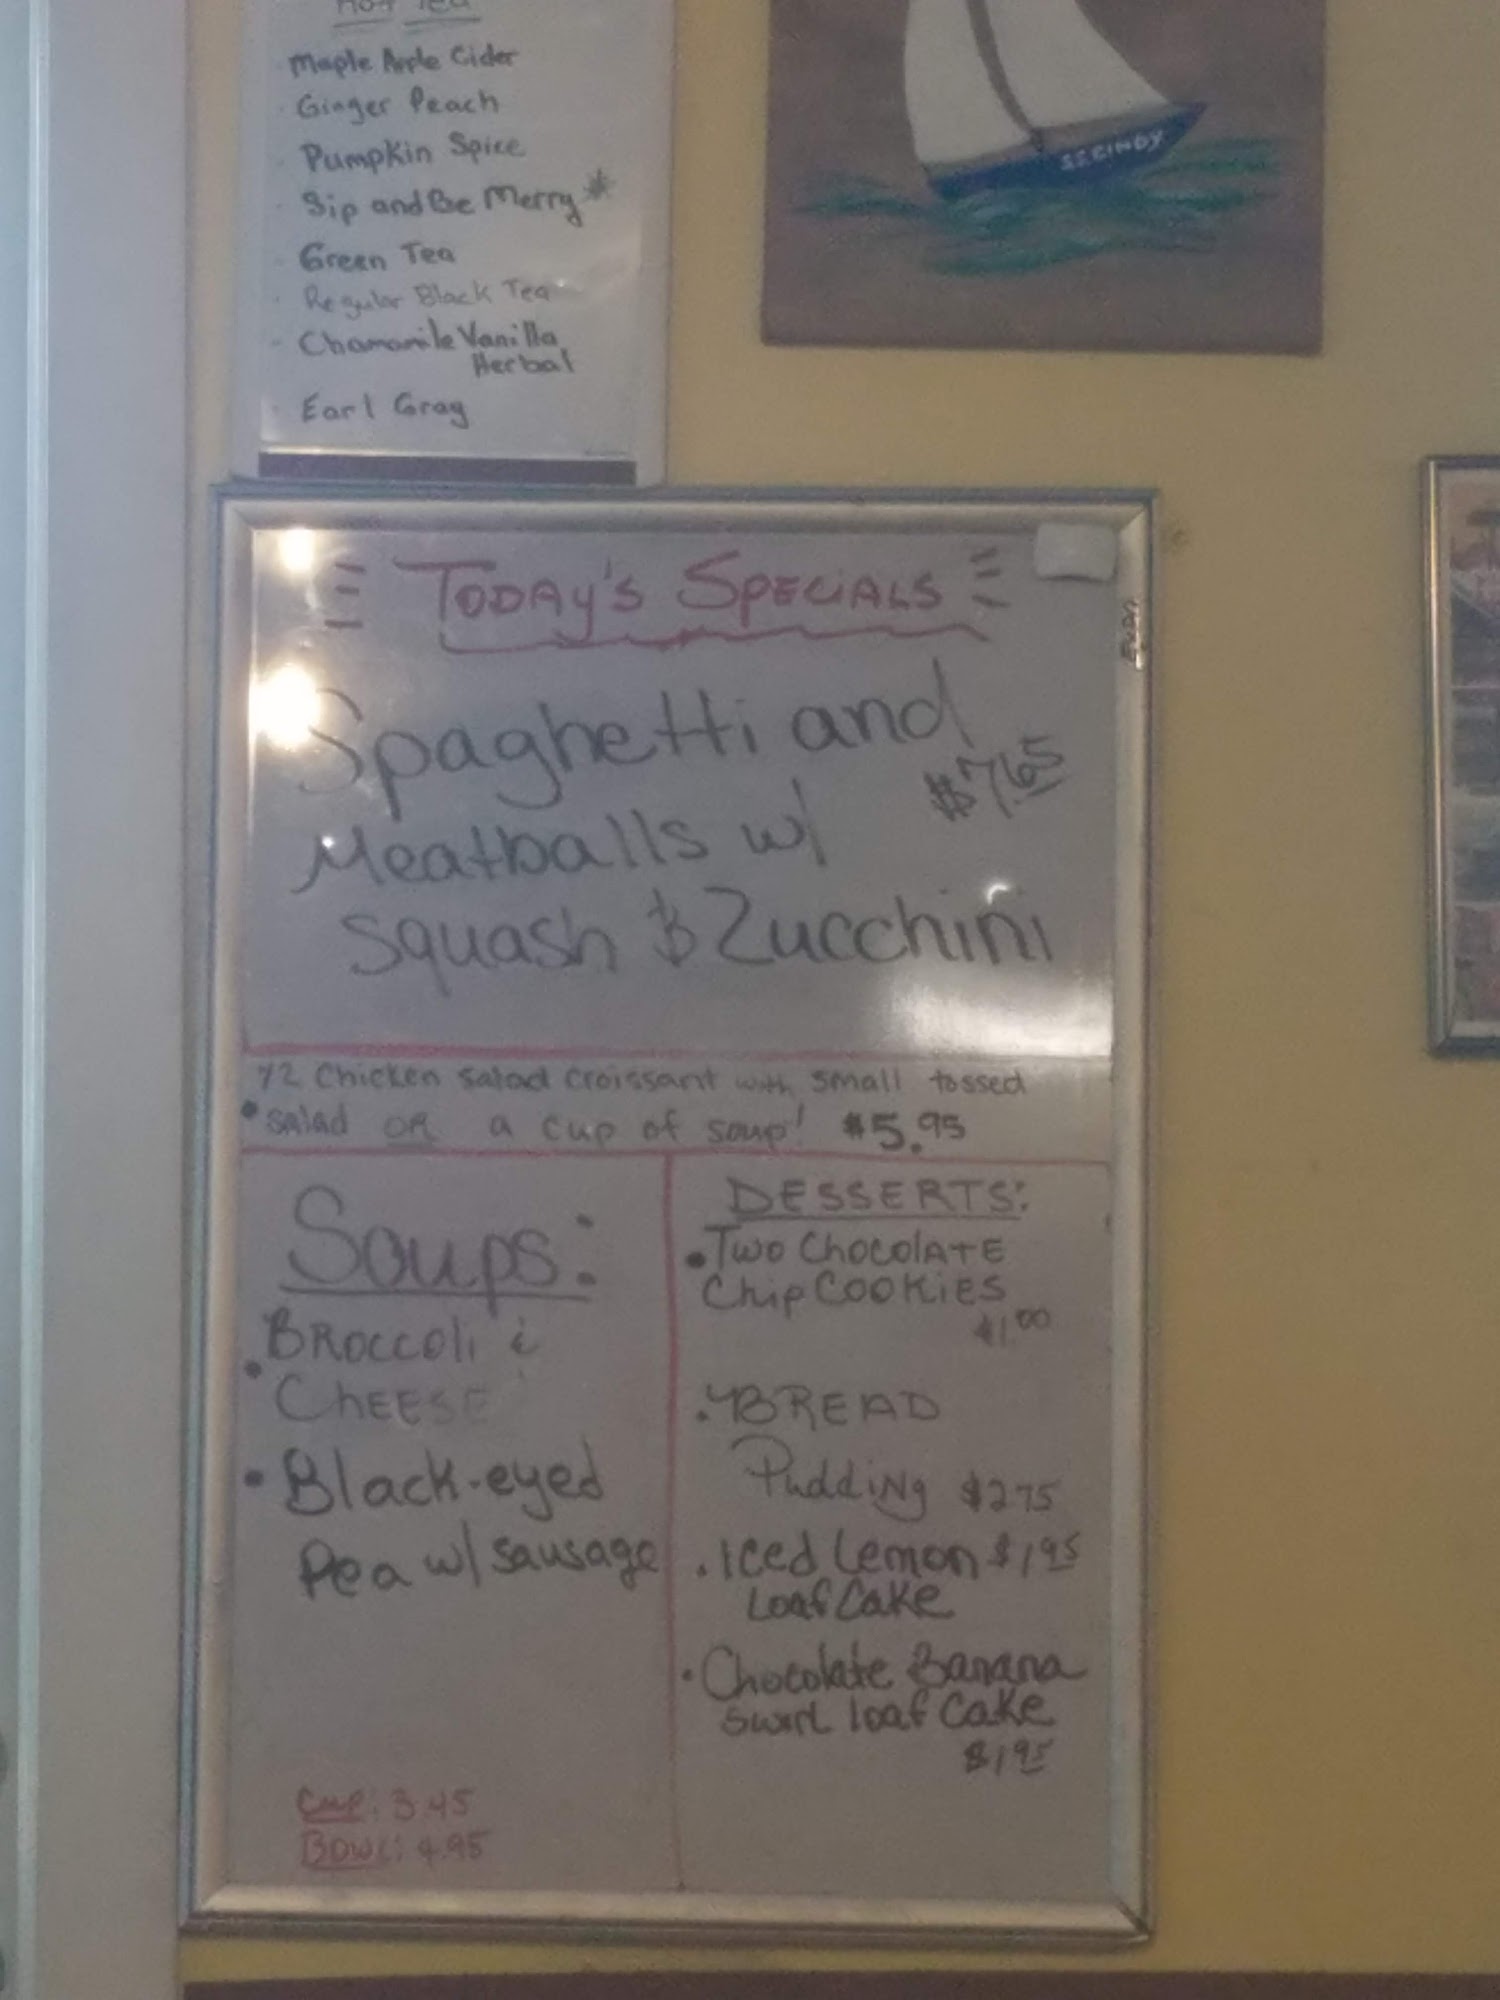 Hot Tea
Maple Apple Cider
Ginger Peach
Pumpkin Spice
Sip and Be Merry*
Green Tea
Regular Black Tea
Chamomile Vanilla
Herbal
Earl Gray
S.S. CINDY
TODAY'S SPECIALS
Spaghetti and
$7.65
Meatballs w/
Squash & Zucchini
1/2 Chicken salad croissant with small tossed
• salad OR a cup of soup! $5.95
Soups:
• BROCCOLI &
CHEESE
• Black-eyed
Pea w/ sausage
Cup: 3.45
Bowl: 4.95
DESSERTS:
• Two Chocolate
Chip Cookies
$1.00
• BREAD
Pudding $2.75
• Iced Lemon $1.95
Loaf Cake
• Chocolate Banana
Swirl loaf Cake
$1.95